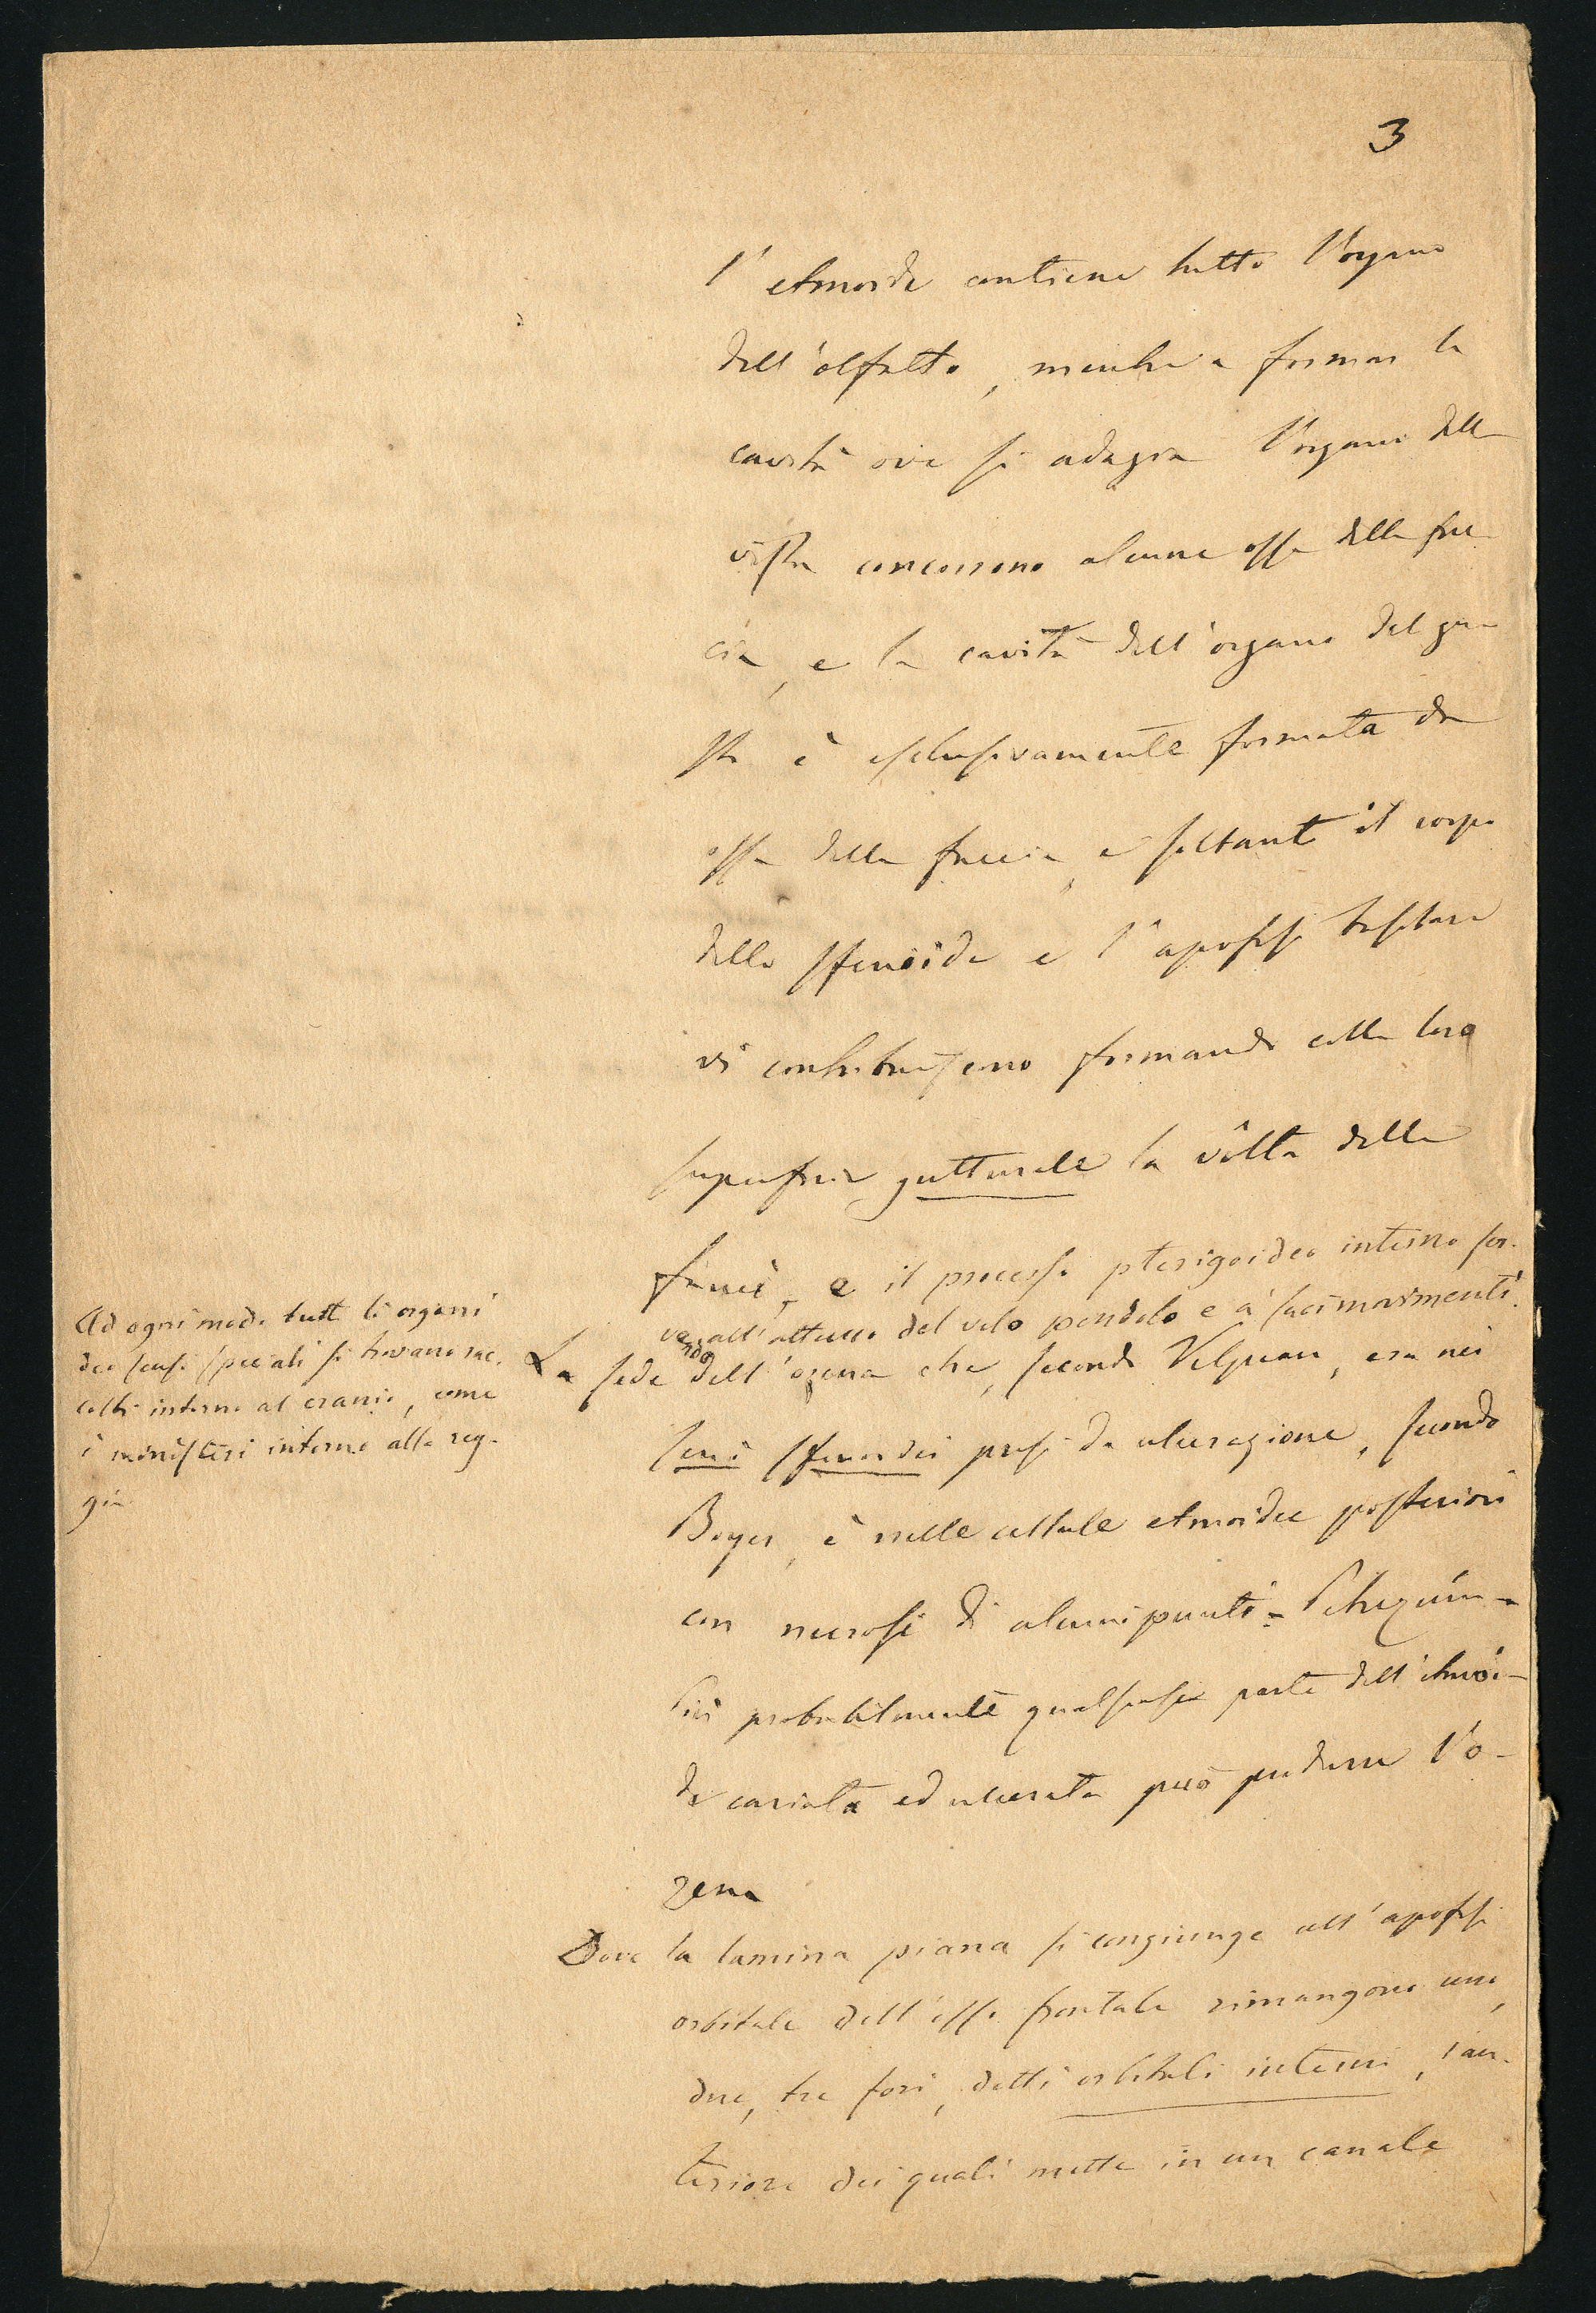 3
l'etmoide contiene tutto l'organo
dell'olfatto, mentre a formar la
cavità ove si adagia l'organo della
vista concorrono alcune ossa della fac
cia, e la cavità dell'organo del gu
sto è esclusivamente formata da
ossa della faccia, e soltanto il corpo
dello sfenoide e l'apofisi basilare
vi contribuiscono formando colla loro
superficie gutturale la vôlta delle
fauci, e il processo pterigoideo interno ser-
vendo all'attacco del velo pendolo e a' suoi movimenti.
Ad ogni modo tutti li organi
dei sensi speciali si trovano rac-
colti intorno al cranio, come
i ministeri intorno alla reg-
gia
La sede dell'ozena che, secondo Velpeau, era nei
seni sfenoidei presi da ulcerazione, secondo
Boyer, è nelle cellule etmoidee posteriori
con necrosi di alcuni punti =
Più probabilmente qualsiasi parte dell'etmoi-
de cariata ed ulcerata può produrre l'o-
zena
Dove la lamina piana si congiunge all'apofisi
orbitale dell'osso frontale rimangono uno,
due, tre fori, detti orbitali interni, l'an-
teriore dei quali mette in un canale